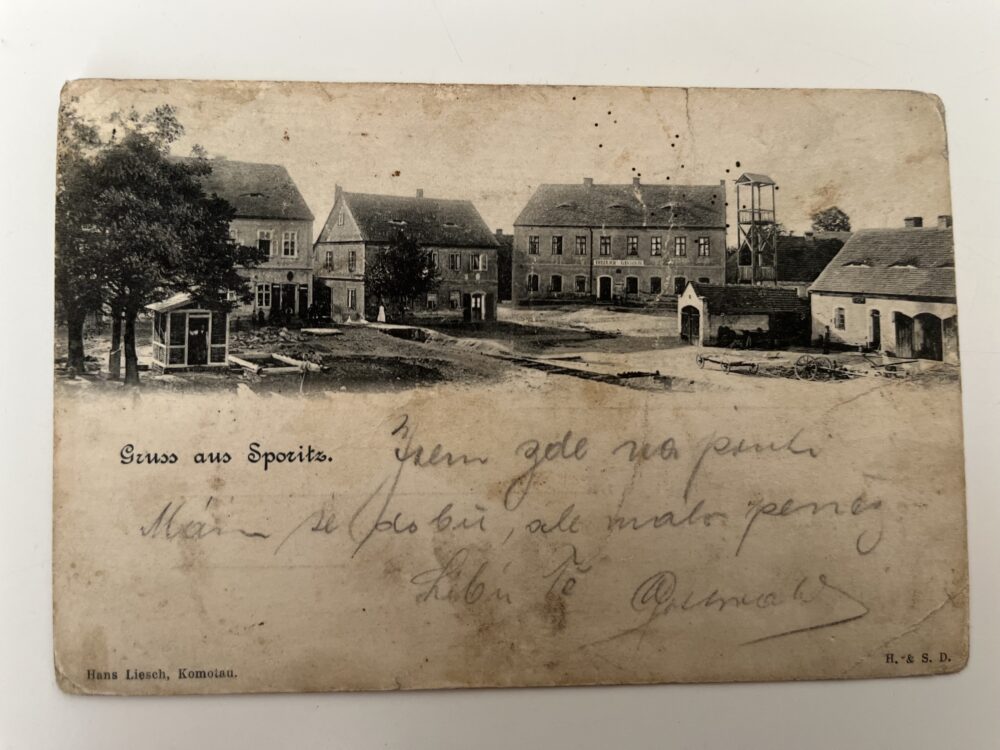 Gruss aus Sporitz.
Jsem zde na pouti
Mám se dobū, ale malo peněz
Líbá Tě
Hans Liesch, Komotau.
H. & S. D.